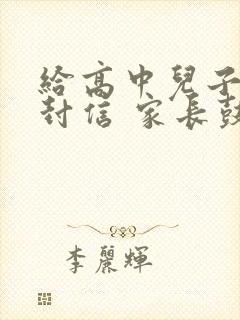 給高中兒子
封信 家長鼓
李麗輝